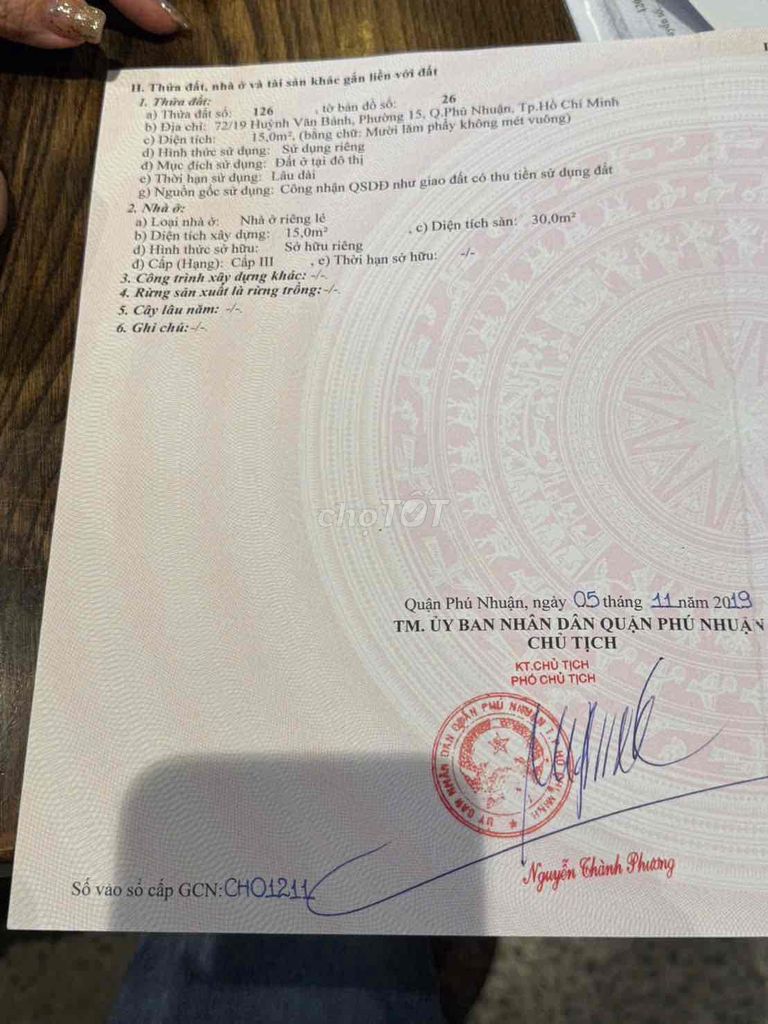 II. Thửa đất, nhà ở và tài sản khác gắn liền với đất
1. Thửa đất:
a) Thửa đất số: 126 , tờ bản đồ số: 26
b) Địa chỉ: 72/19 Huỳnh Văn Bánh, Phường 15, Q.Phú Nhuận, Tp.Hồ Chí Minh
c) Diện tích: 15,0m², (bằng chữ: Mười lăm phẩy không mét vuông)
d) Hình thức sử dụng: Sử dụng riêng
đ) Mục đích sử dụng: Đất ở tại đô thị
e) Thời hạn sử dụng: Lâu dài
g) Nguồn gốc sử dụng: Công nhận QSDĐ như giao đất có thu tiền sử dụng đất
2. Nhà ở:
a) Loại nhà ở: Nhà ở riêng lẻ
b) Diện tích xây dựng: 15,0m² , c) Diện tích sàn: 30,0m²
d) Hình thức sở hữu: Sở hữu riêng
đ) Cấp (Hạng): Cấp III , e) Thời hạn sở hữu: -/-
3. Công trình xây dựng khác: -/-.
4. Rừng sản xuất là rừng trồng: -/-.
5. Cây lâu năm: -/-.
6. Ghi chú: -/-.
chợTỐT
Quận Phú Nhuận, ngày 05 tháng 11 năm 2019
TM. ỦY BAN NHÂN DÂN QUẬN PHÚ NHUẬN
CHỦ TỊCH
KT.CHỦ TỊCH
PHÓ CHỦ TỊCH
ỦY BAN NHÂN DÂN QUẬN PHÚ NHUẬN T.P HỒ CHÍ MINH
Nguyễn Thành Phương
Số vào sổ cấp GCN: CH01211